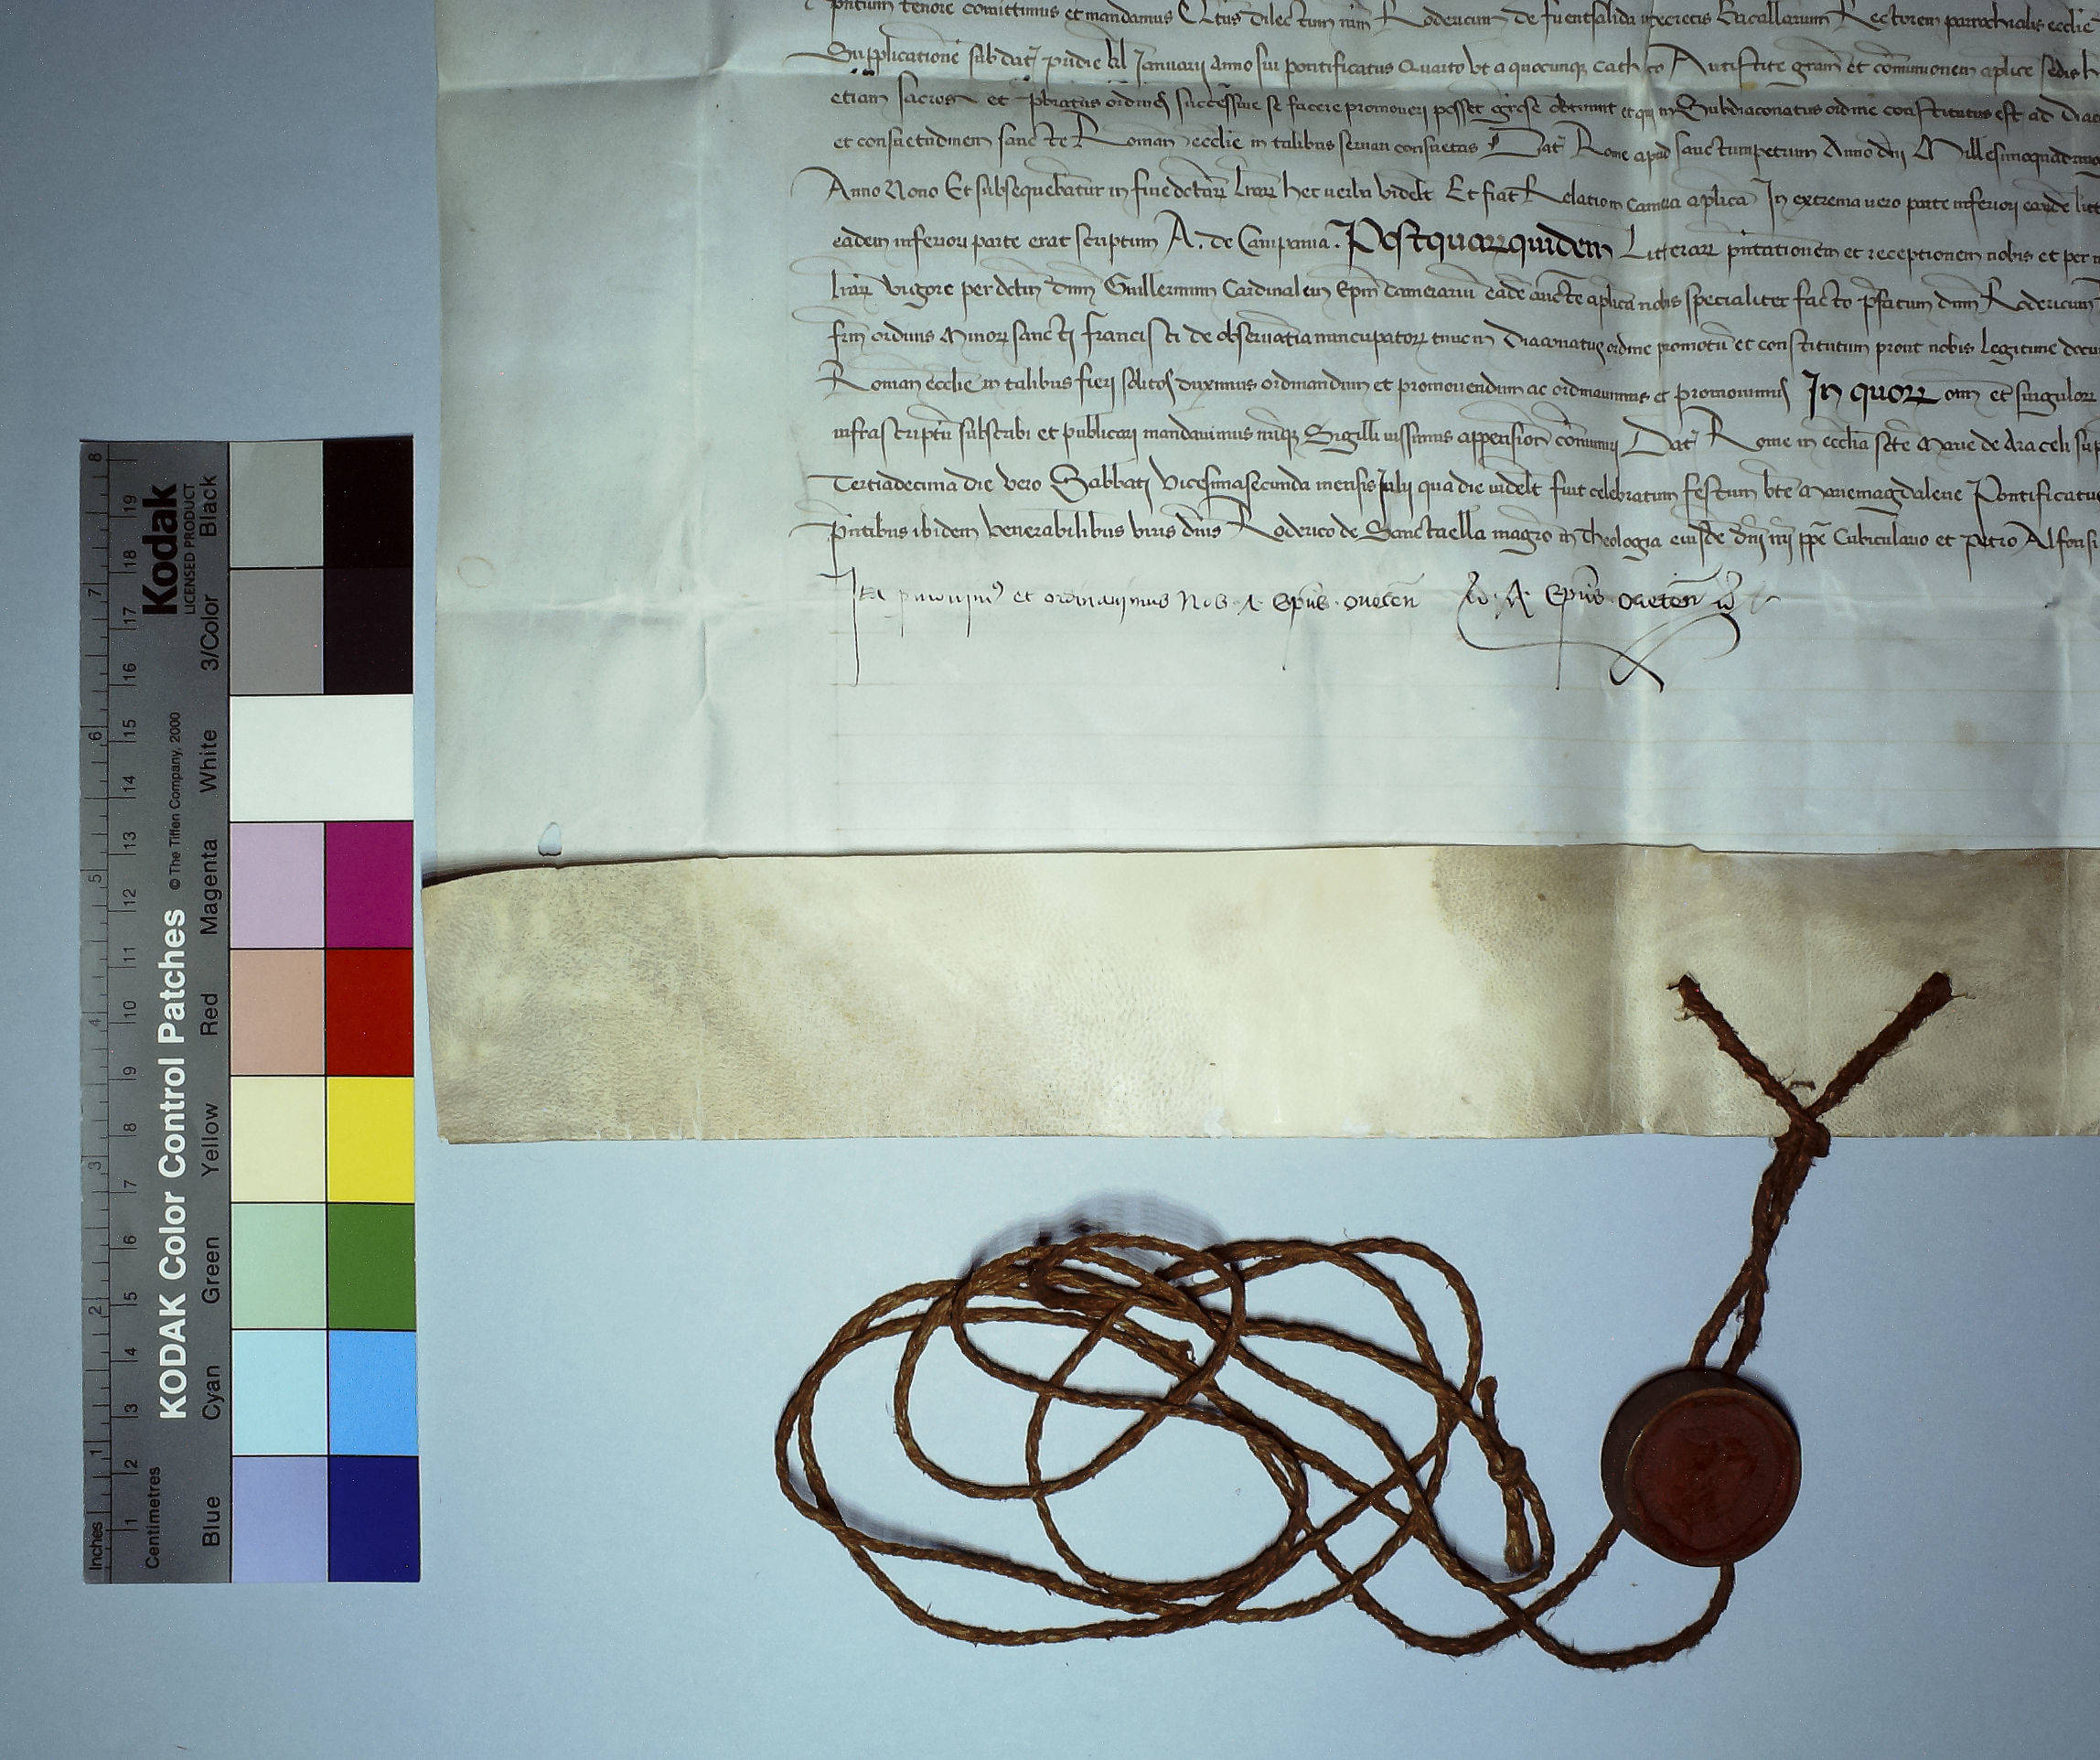 tenore comittimus et mandamus Rodericum de fuentsalida Rectorem parrochialis ecclie
Supplicatione sub dat pridie kl Januarii anno sui pontificatus Quarto vt a quocunque Antistite gram et comunionem aplice sedis
etiam sacros et successiue se facere promoueri posset obtinuit et qui in Subdiaconatus ordine constitutus est ad
et consuetudinem sancte Roman ecclie in talibus seruari consuetas Dat Rome apud sanctumpetrum Anno dni
Anno Nono Et subsequebatur in fine dctar lrar hec verba videlt Et fiat Relatio in Camera aplica In extrema vero parte inferiori
eadem inferiori parte erat scriptum A. de Campania. Postquarquidem Litterar pntationem et receptionem nobis et per
lrar vigore per dctm dnm Guillermum Cardinalem Epm Camerariu eade aucte aplica nobis specialiter facto pfatum dnm Rodericum
frm ordinis Minor sancti francisci de obseruatia nuncupator tunc in Diaconatus ordine promotu et constitutum prout nobis legitime
Roman ecclie in talibus fieri solitos duximus ordinandum et promouendum ac ordinauimus et promouimus In quor oim et singulor
infrascriptu subscribi et publicari mandauimus nriqz Sigilli iussimus appension comuniri Dat Rome in ecclia scte Marie de Ara celi
Tertiadecima die vero Sabbati Vicesimasecunda mensis Julij qua die videlt fuit celebratum festum bte Mariemagdalene Pontificatus
pntibus ibidem venerabilibus viris dnis Roderico de Sanctaella magro in Theologia eiusde dni nri ppe Cubiculario et Petro Alfonsi
Ita et ordinauimus Nos A. Epus Oueten A. Epus Oueten
KODAK Color Control Patches
Kodak
LICENSED PRODUCT
© The Tiffen Company, 2000
Black
3/Color
White
Magenta
Red
Yellow
Green
Cyan
Blue
Inches 1 2 3 4 5 6 7 8
Centimetres 1 2 3 4 5 6 7 8 9 10 11 12 13 14 15 16 17 18 19